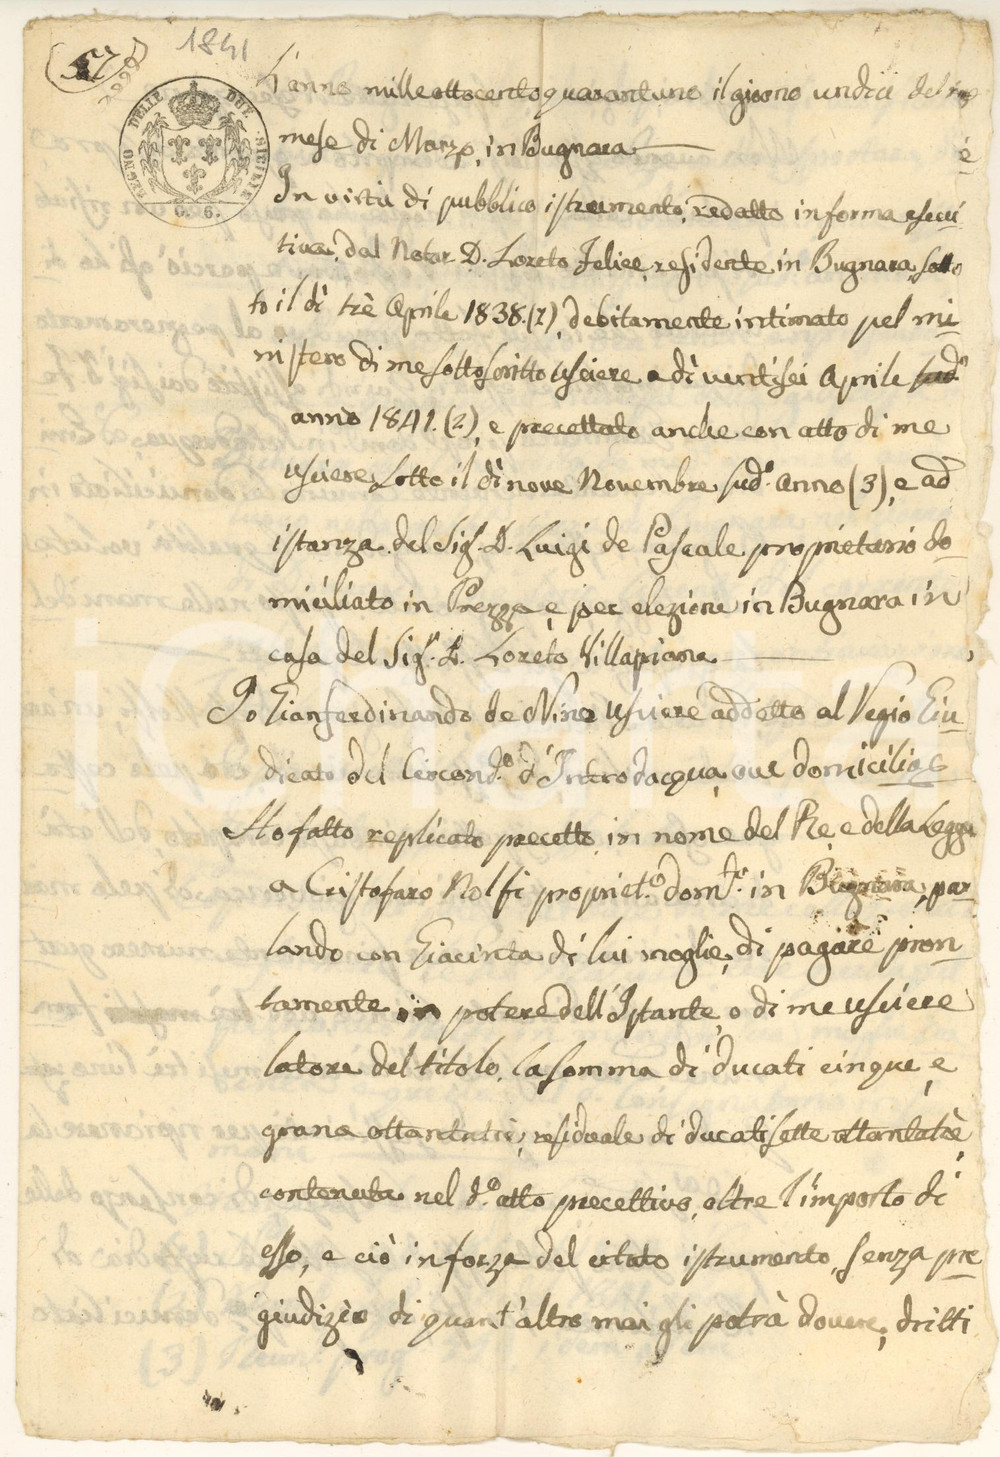 (57)
1841
REGNO DELLE DUE SICILIE
G. 6.
L'anno mille ottocento quarantuno il giorno undici del
mese di Marzo, in Bugnara
In virtù di pubblico istrumento, redatto in forma esecu
tiva, dal Notar D. Loreto Felice, residente in Bugnara, sotto
to il dì trè Aprile 1838.(1), debitamente intimato pel mi
nistero di me sottoscritto usciere a dì ventisei Aprile sud.o
anno 1841.(2), e precettato anche con atto di me
usciere sotto il dì nove Novembre sud.o anno (3), e ad
istanza del Sig.r D. Luigi de Pascale proprietario do
miciliato in Prezza, e per elezione in Bugnara in
casa del Sig.r D. Loreto Villapiana
Io Gianferdinando de Nino usciere addetto al Regio Giu
dicato del Circond.o d'Introdacqua, ove domicilio
Ho fatto replicato precetto, in nome del Re, e della Legge
a Cristofaro Nolfi propriet.o dom.to in Bugnara, par
lando con Giacinta di lui moglie, di pagare pron
tamente in potere dell'Istante, o di me usciere
latore del titolo, la somma di ducati cinque, e
grana ottantatrè, residuale di ducati sette ottantatrè,
contenuta nel d.o atto precettivo, oltre l'importo di
esso, e ciò in forza del citato istrumento, senza pre
giudizio di quant'altro mai gli potrà dovere, dritti